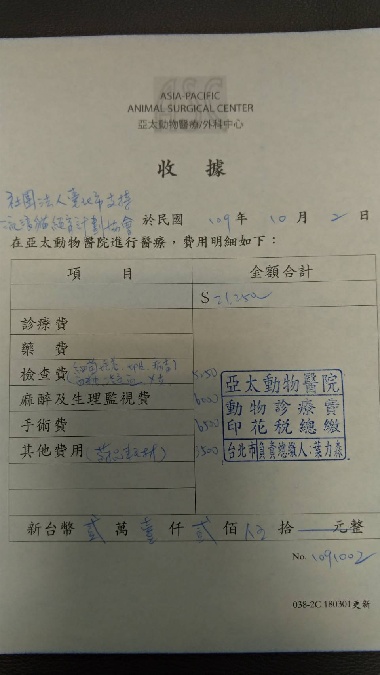 ASC
ASIA-PACIFIC
ANIMAL SURGICAL CENTER
亞太動物醫療/外科中心
收 據
社團法人臺北市支持
流浪貓絕育計劃協會 於民國 109 年 10 月 2 日
在亞太動物醫院進行醫療，費用明細如下：
項 目 金額合計
$ 21,250
診療費
藥 費
檢查費
麻醉及生理監視費
手術費
其他費用
亞太動物醫院
動物診療費
印花税總繳
台北市負責總繳人:葉力森
新台幣 貳 萬 壹 仟 貳 佰 伍 拾 元整
No. 1091002
038-2C 180301更新